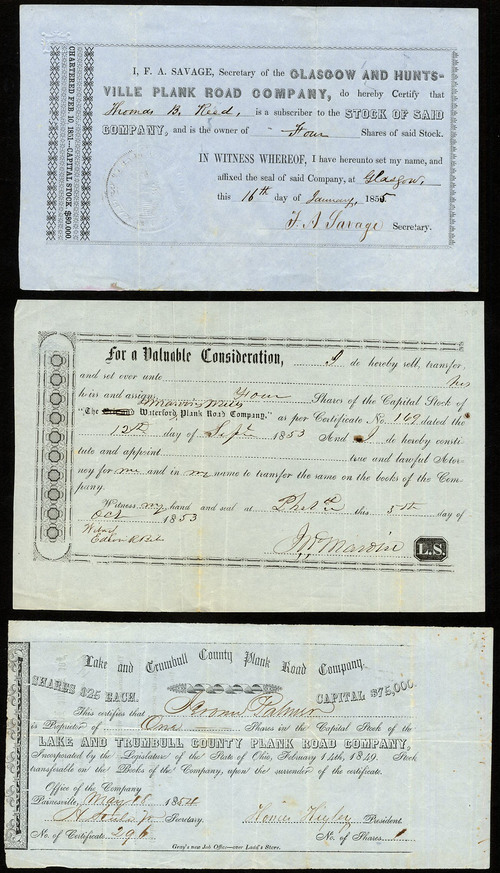 CHARTERED FEB. 10, 1851—CAPITAL STOCK $80,000.
I, F. A. SAVAGE, Secretary of the GLASGOW AND HUNTS-
VILLE PLANK ROAD COMPANY, do hereby Certify that
Thomas B. Reed, is a subscriber to the STOCK OF SAID
COMPANY, and is the owner of Four Shares of said Stock.
IN WITNESS WHEREOF, I have hereunto set my name, and
affixed the seal of said Company, at Glasgow,
this 16th day of January, 1855
F. A. Savage Secretary.
For a Valuable Consideration, I do hereby sell, transfer,
and set over unto his
heirs and assigns Four Shares of the Capital Stock of
"The Waterford Plank Road Company," as per Certificate No. 169 dated the
12th day of Sept 1853 And I do hereby consti-
tute and appoint true and lawful Attor-
ney for me and in my name to transfer the same on the books of the Com-
pany.
Witness my hand and seal at this 5th day of
Oct 1853
L.S.
Lake and Trumbull County Plank Road Company.
SHARES $25 EACH. CAPITAL $75,000.
This certifies that Palmer
is Proprietor of One Shares in the Capital Stock of the
LAKE AND TRUMBULL COUNTY PLANK ROAD COMPANY,
Incorporated by the Legislature of the State of Ohio, February 14th, 1849. Stock
transferable on the Books of the Company, upon the surrender of the certificate.
Office of the Company
Painesville, May 1854
Secretary. President.
No. of Certificate 296 No. of Shares 1
Gray's new Job Office—over Ladd's Store.